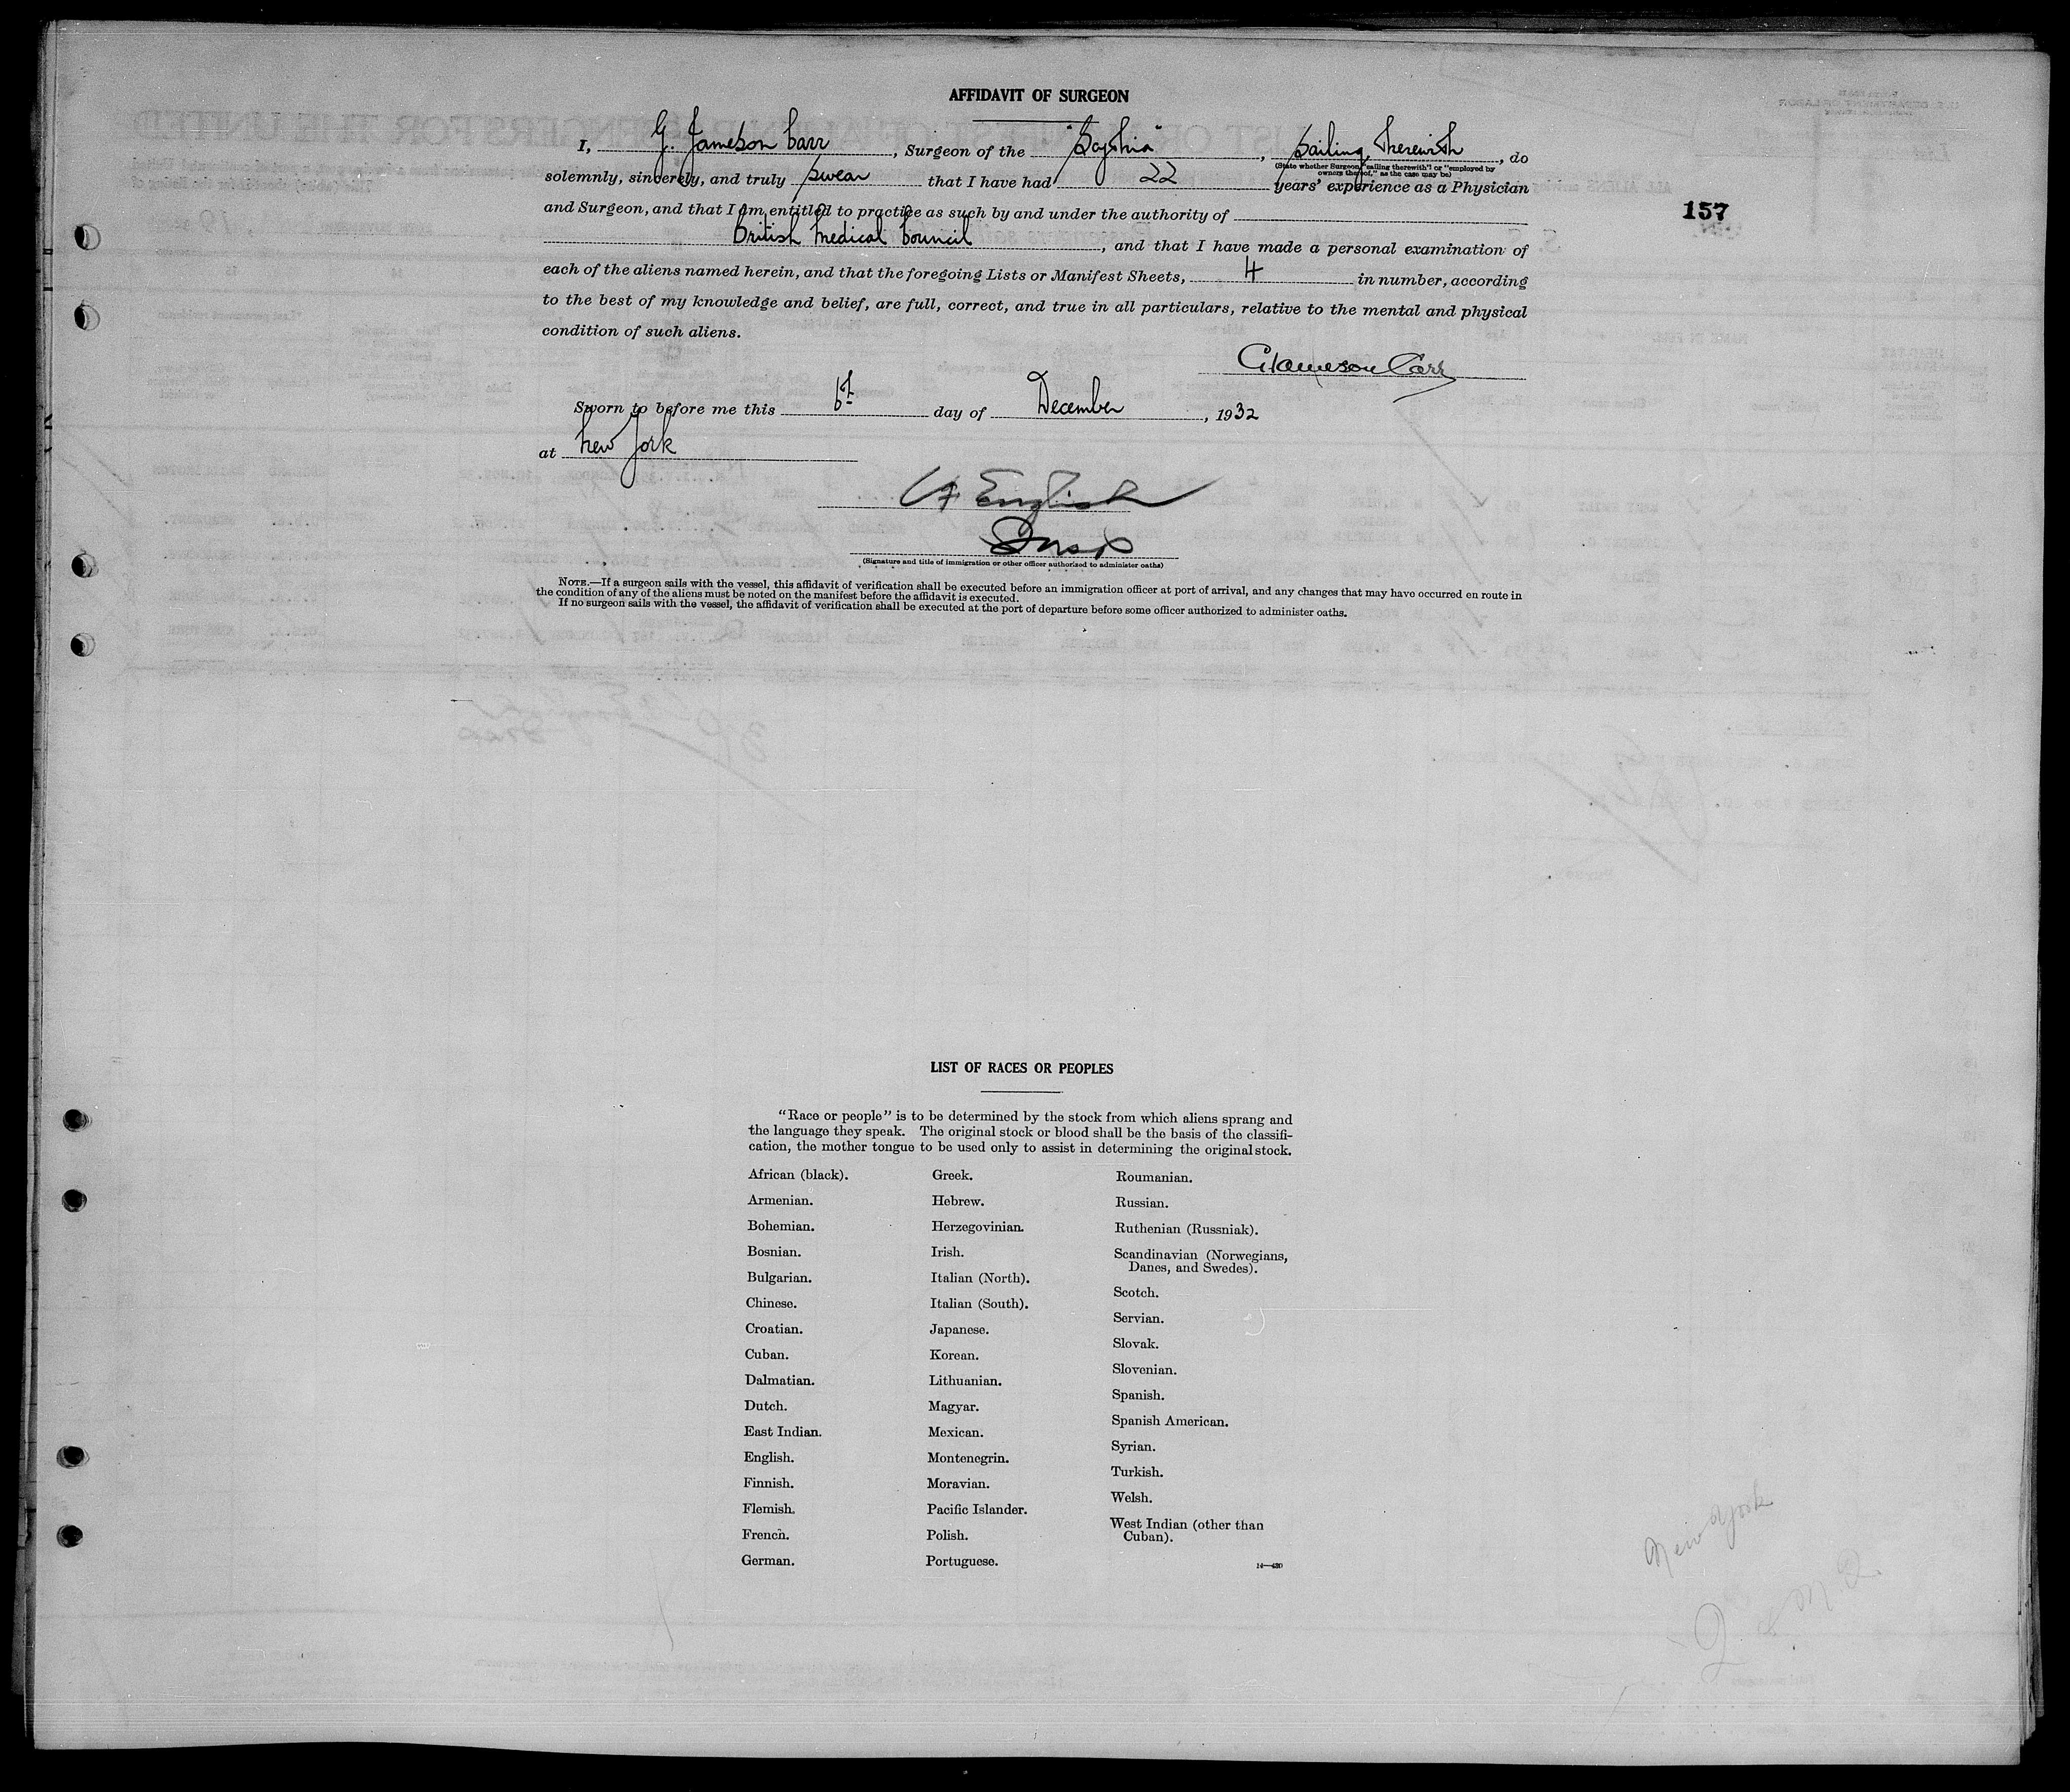 AFFIDAVIT OF SURGEON
I, G. Jameson Carr, Surgeon of the "Scythia", Sailing Therewith, do
(State whether Surgeon "sailing therewith" or "employed by
owners thereof," as the case may be)
solemnly, sincerely, and truly swear that I have had 22 years' experience as a Physician
and Surgeon, and that I am entitled to practice as such by and under the authority of
British Medical Council, and that I have made a personal examination of
each of the aliens named herein, and that the foregoing Lists or Manifest Sheets, 4 in number, according
to the best of my knowledge and belief, are full, correct, and true in all particulars, relative to the mental and physical
condition of such aliens.
157
G Jameson Carr
Sworn to before me this 6th day of December, 1932
at New York
English
(Signature and title of immigration or other officer authorized to administer oaths)
NOTE.—If a surgeon sails with the vessel, this affidavit of verification shall be executed before an immigration officer at port of arrival, and any changes that may have occurred en route in
the condition of any of the aliens must be noted on the manifest before the affidavit is executed.
If no surgeon sails with the vessel, the affidavit of verification shall be executed at the port of departure before some officer authorized to administer oaths.
LIST OF RACES OR PEOPLES
"Race or people" is to be determined by the stock from which aliens sprang and
the language they speak. The original stock or blood shall be the basis of the classifi-
cation, the mother tongue to be used only to assist in determining the original stock.
African (black).
Armenian.
Bohemian.
Bosnian.
Bulgarian.
Chinese.
Croatian.
Cuban.
Dalmatian.
Dutch.
East Indian.
English.
Finnish.
Flemish.
French.
German.
Greek.
Hebrew.
Herzegovinian.
Irish.
Italian (North).
Italian (South).
Japanese.
Korean.
Lithuanian.
Magyar.
Mexican.
Montenegrin.
Moravian.
Pacific Islander.
Polish.
Portuguese.
Roumanian.
Russian.
Ruthenian (Russniak).
Scandinavian (Norwegians,
Danes, and Swedes).
Scotch.
Servian.
Slovak.
Slovenian.
Spanish.
Spanish American.
Syrian.
Turkish.
Welsh.
West Indian (other than
Cuban).
14—430
New York